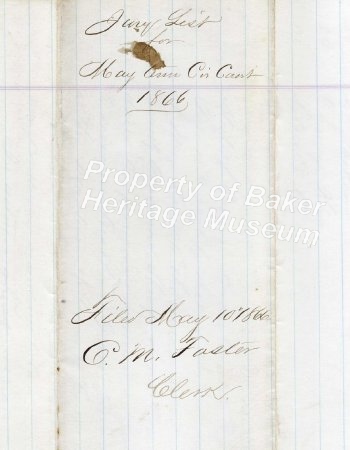 Jury List
for
May Term Cir Court
1866
Property of Baker
Heritage Museum
Filed May 10 1866
C. M. Foster
Clerk.